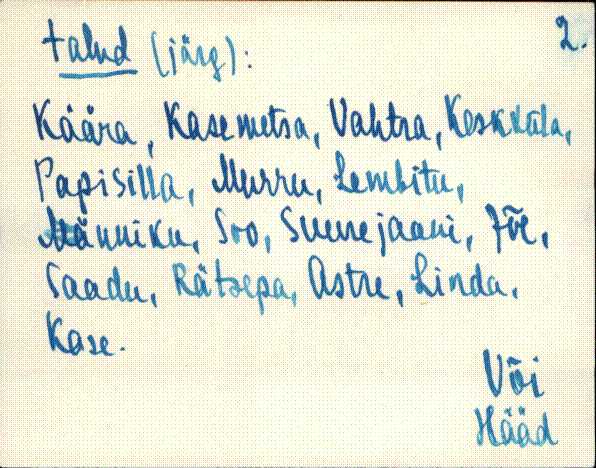 talud (järg): 2.
Käära, Kasemetsa, Vahtra, Kesküla,
Papisilla, Murru, Lembitu,
Männiku, Soo, Suurejaani, Jõe,
Saadu, Rätsepa, Astre, Linda,
Kase.
Või
Hääd